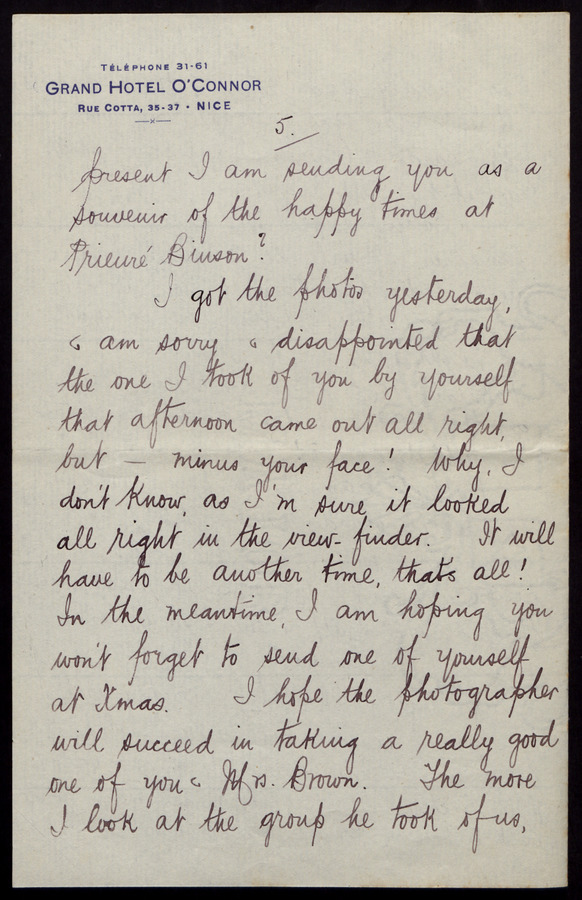 TÉLÉPHONE 31-61
GRAND HOTEL O'CONNOR
RUE COTTA, 35-37 • NICE
5.
present I am sending you as a
souvenir of the happy times at
Prieuré Binson?
I got the photos yesterday,
& am sorry & disappointed that
the one I took of you by yourself
that afternoon came out all right,
but — minus your face! Why, I
don't know, as I'm sure it looked
all right in the view-finder. It will
have to be another time, that's all!
In the meantime, I am hoping you
won't forget to send one of yourself
at Xmas. I hope the photographer
will succeed in taking a really good
one of you & Mrs. Brown. The more
I look at the group he took of us,